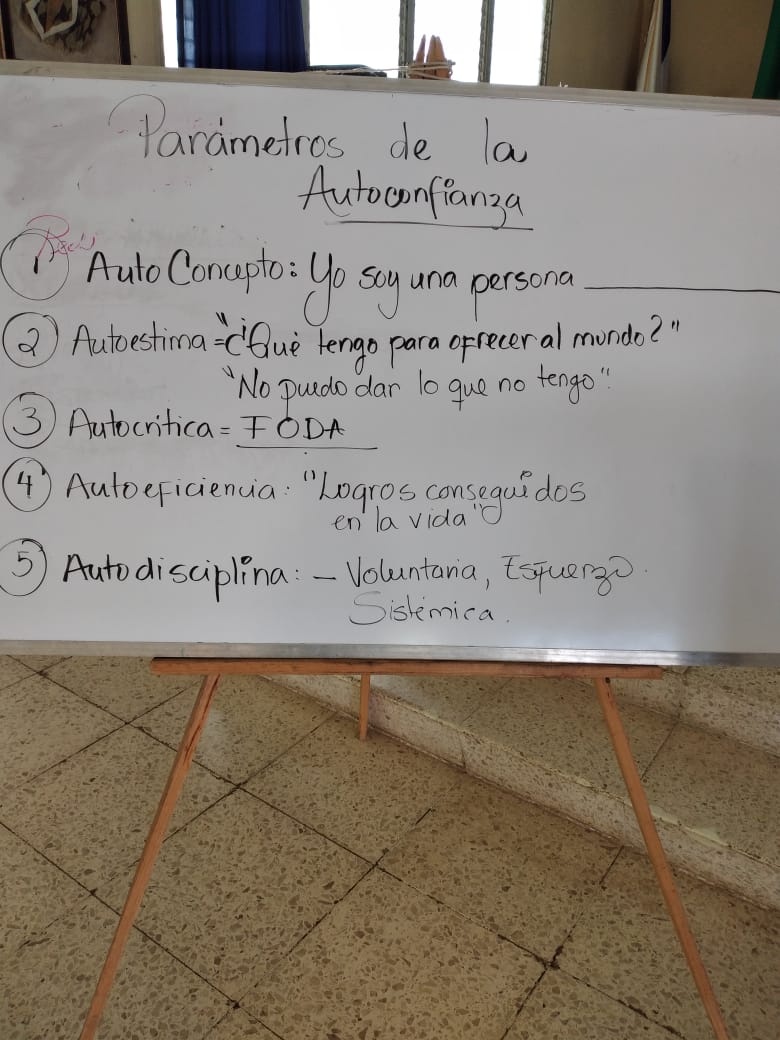 Parámetros de la
Autoconfianza
1 Auto Concepto: Yo soy una persona ________
2 Autoestima = "¿Qué tengo para ofrecer al mundo?"
"No puedo dar lo que no tengo".
3 Autocrítica = FODA
4 Autoeficiencia: "Logros conseguidos
en la vida"
5 Autodisciplina: - Voluntaria, Esfuerzo.
Sistémica.